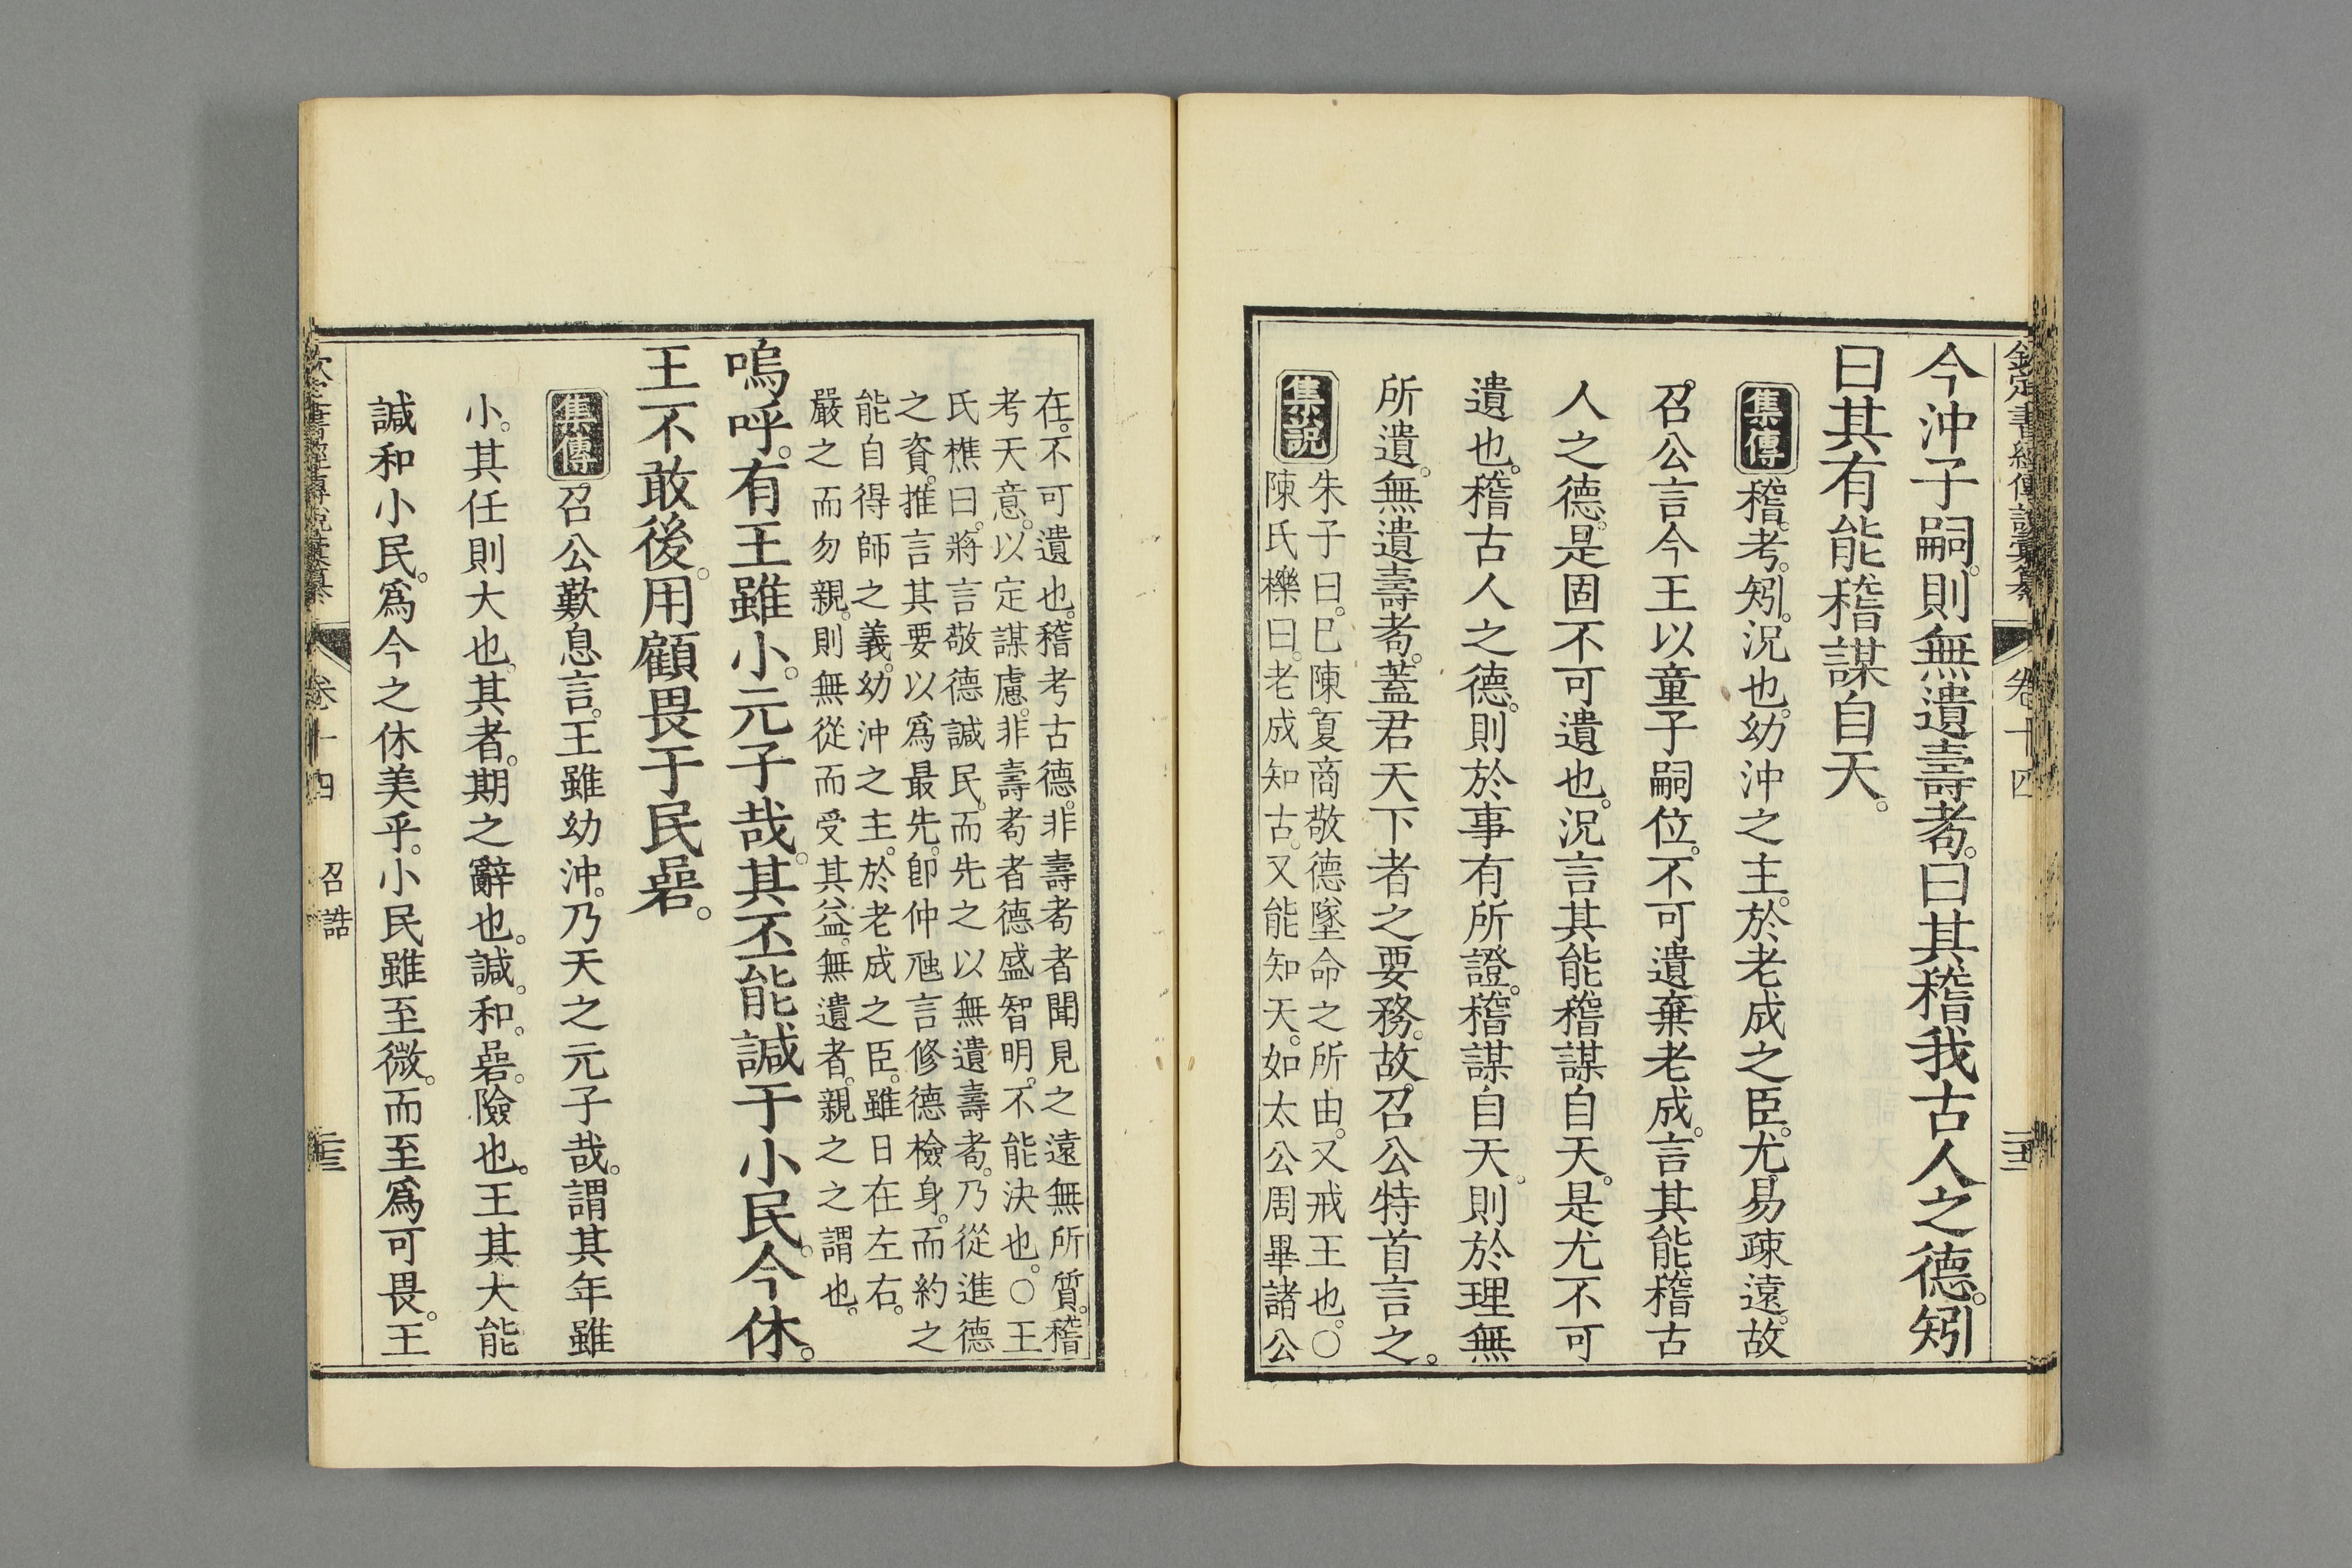 欽定書經傳說彙纂 卷十四
今沖子嗣。則無遺壽耇。曰其稽我古人之德。矧
曰其有能稽謀自天。
集傳 稽。考。矧。況也。幼沖之主。於老成之臣。尤易疎遠。故
召公言今王以童子嗣位。不可遺棄老成。言其能稽古
人之德。是固不可遺也。況言其能稽謀自天。是尤不可
遺也。稽古人之德。則於事有所證。稽謀自天。則於理無
所遺。無遺壽耇。蓋君天下者之要務。故召公特首言之。
集說 朱子曰。巳陳夏商敬德墜命之所由。又戒王也。○
陳氏櫟曰。老成知古。又能知天。如太公周畢諸公
在。不可遺也。稽考古德。非壽耇者聞見之遠無所質。稽
考天意。以定謀慮。非壽耇者德盛智明。不能決也。○王
氏樵曰。將言敬德諴民。而先之以無遺壽耇。乃從進德
之資。推言其要以爲最先。卽仲虺言修德檢身。而約之
能自得師之義。幼沖之主。於老成之臣。雖日在左右。
嚴之而勿親。則無從而受其益。無遺者。親之之謂也。
嗚呼。有王雖小。元子哉。其丕能諴于小民。今休。
王不敢後。用顧畏于民碞。
集傳 召公歎息言。王雖幼沖。乃天之元子哉。謂其年雖
小。其任則大也。其者。期之辭也。諴。和。碞。險也。王其大能
諴和小民。爲今之休美乎。小民雖至微。而至爲可畏。王
欽定書經傳說彙纂 卷十四 召誥